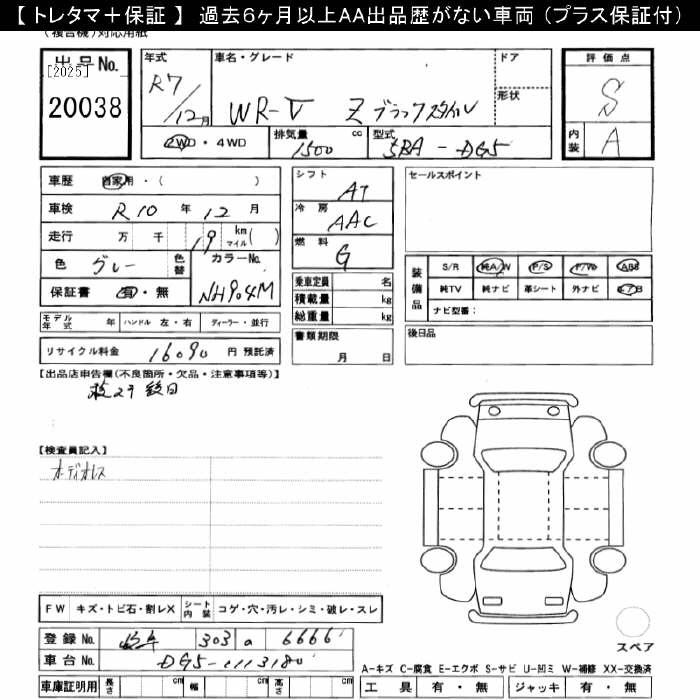 【 トレタマ＋保証 】 過去６ヶ月以上AA出品歴がない車両（プラス保証付）
(複合機)対応用紙
出品No.
[2025]
20038
年式 R7/12月
車名・グレード WR-V Z ブラックスタイル
ドア
形状
2WD・4WD
排気量 1500 cc
型式 5BA - DG5
評価点 S
内装 A
車歴 自家用・( )
車検 R10 年 12 月
走行 万 千 19 km マイル ( )
色 グレー 色替 カラーNo.
保証書 有・無 NH904M
モデル年式 年 ハンドル 左・右 ディーラー・並行
リサイクル料金 16090 円 預託済
シフト AT
冷房 AAC
燃料 G
乗車定員 名
積載量 kg
総重量 kg
書類期限
月 日
セールスポイント
装備品
S/R 純A/W P/S P/W ABS
純TV 純ナビ 革シート 外ナビ エアB
ナビ型番：
後日品
【出品店申告欄(不良箇所・欠品・注意事項等)】
後日
【検査員記入】
オーディオレス
FW キズ・トビ石・割レX シート内装 コゲ・穴・汚レ・シミ・破レ・スレ
登録No. 303 a 6666
車台No. DG5-1113180
車庫証明用 長さ cm 幅 cm 高さ cm
スペア
A-キズ C-腐食 E-エクボ S-サビ U-凹ミ W-補修 XX-交換済
工具 有・無 ジャッキ 有・無